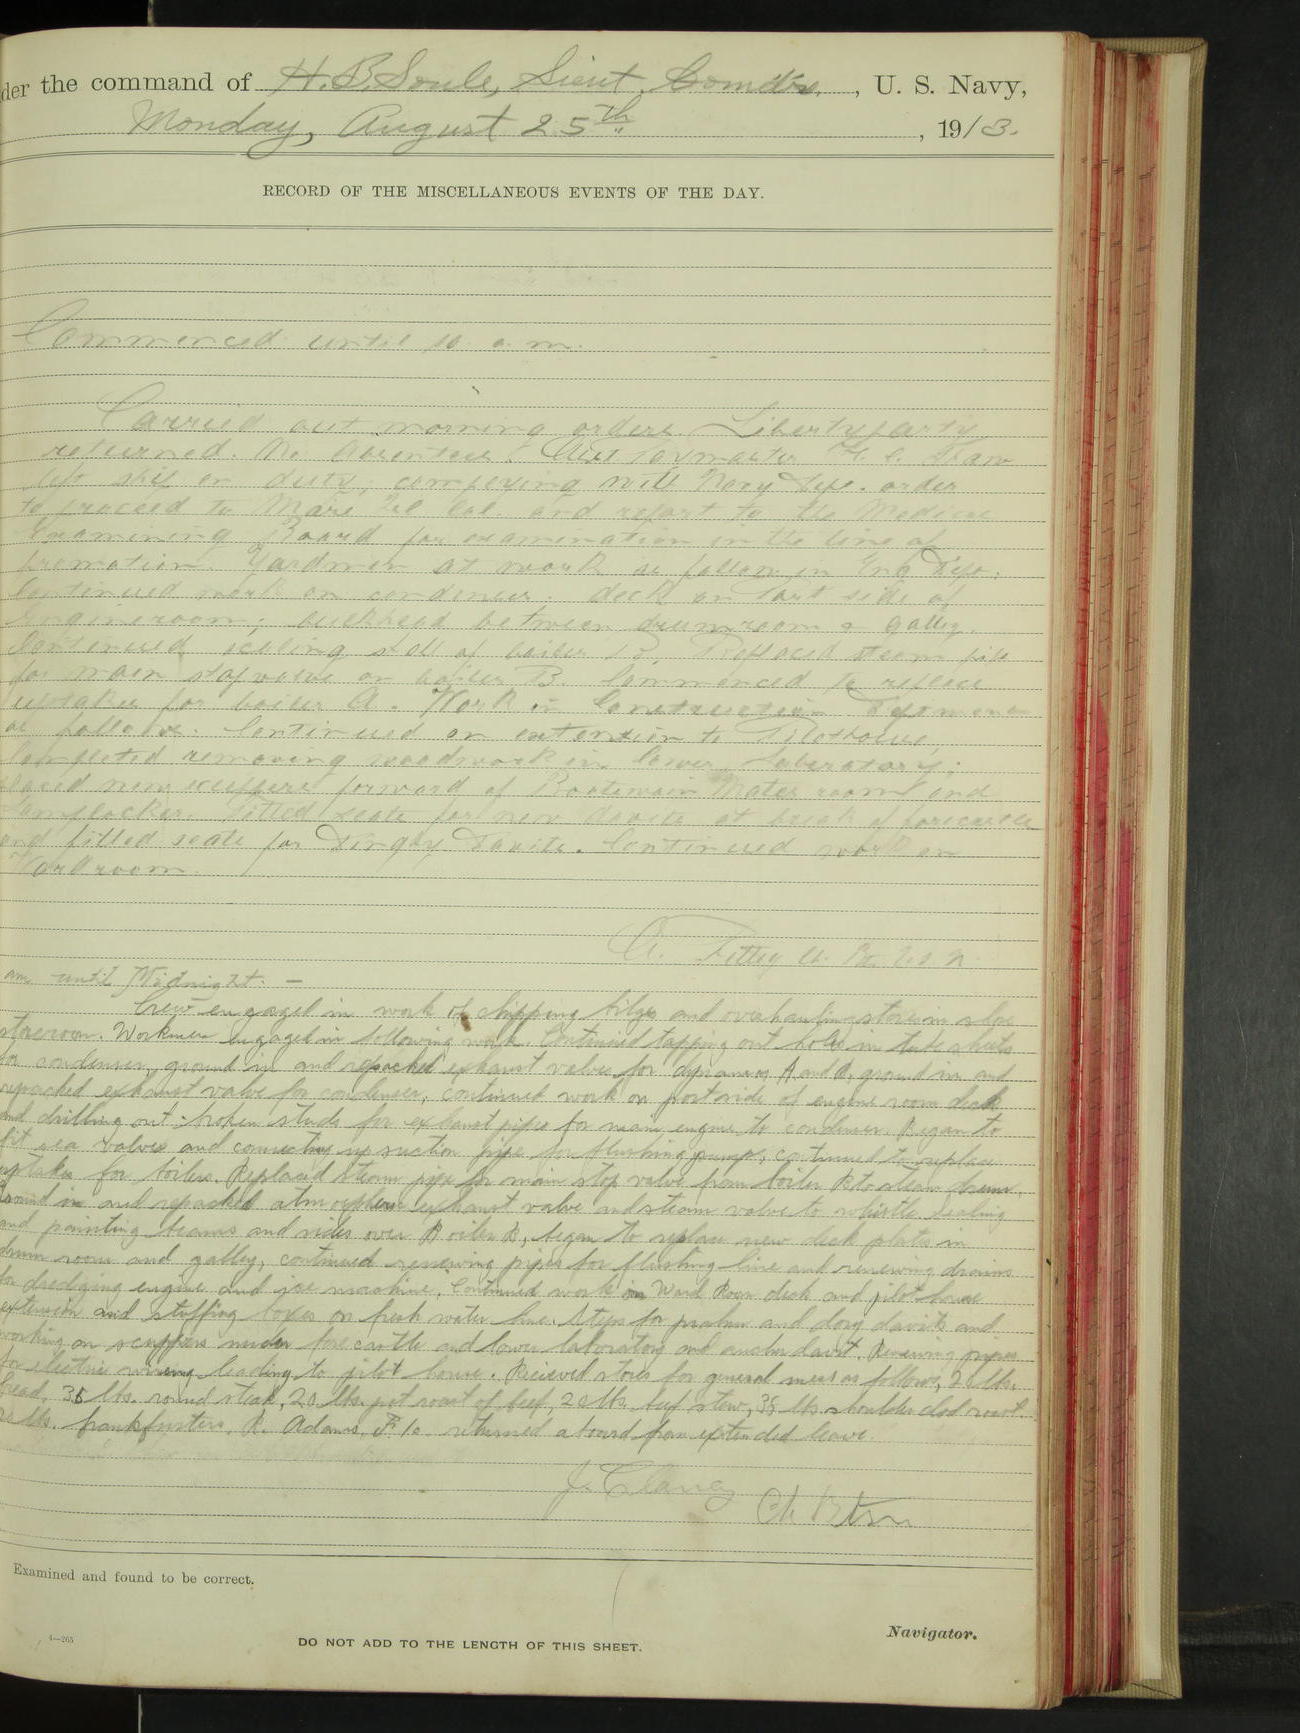 der the command of H. B. Soule, Lieut. Comdr., U. S. Navy,
Monday, August 25th, 1913.
RECORD OF THE MISCELLANEOUS EVENTS OF THE DAY.
Commenced until 10 a. m.
Carried out morning orders. Liberty party
returned. No Absentees. Paymaster
left ship on duty, complying with Navy Dep. order
to proceed to Mare Isl Cal. and report to the Medical
Examining Board for examination in the line of
promotion. Yardmen at work as follow in Eng Dep.
Continued work on condenser. deck on Port side of
Engineroom; bulkhead between drumroom & galley.
Continued scaling shell of boiler B. Replaced steam pipe
for main stop valve on boiler B. Commenced to replace
uptakes for boiler A. Work in Construction Department
as follows. Continued on extension to Pilothouse,
Completed removing woodwork in lower Laboratory;
placed new scuppers forward of Boatswain Mates room and
Lamplocker. Fitted seats for new davits at break of forecastle
and fitted seats for Dinghy Davits. Continued work on
Wardroom.
am until Midnight. -
Crew engaged in work of chipping bilges and overhauling stores in
storeroom. Workmen engaged in following work. Continued tapping out holes in tube sheets
for condenser, ground in and repacked exhaust valves for dynamos A and B, ground in and
repacked exhaust valve for condenser, continued work on port side of engine room deck
and drilling out broken studs for exhaust pipes for main engine to condenser. Began to
fit sea valves and connecting up suction pipe for flushing pump, continued to replace
uptakes for boilers. Replaced steam pipe for main stop valve from boiler B to steam drum.
Ground in and repacked atmosphere exhaust valve and steam valve to whistle. Scaling
and painting beams and sides over Boiler B, began to replace new deck plates in
drum room and galley, continued renewing pipes for flushing line and renewing drains
for dredging engine and ice machine. Continued work on Ward Room deck and pilot house
extension and stuffing boxes on fresh water line. Steps for and dory davits and
working on scuppers under forecastle and lower laboratory and anchor davit. Renewing pipes
for electric wiring leading to pilot house. Received stores for general mess as follows, 20 lbs.
bread, 35 lbs. round steak, 20 lbs. pot roast of beef, 20 lbs. beef stew, 35 lbs. shoulder clod roast
lbs. frankfurters. R. Adams, F1c. returned aboard from extended leave.
J. Clancy
Ch Btsn
Examined and found to be correct.
4—265
DO NOT ADD TO THE LENGTH OF THIS SHEET.
Navigator.